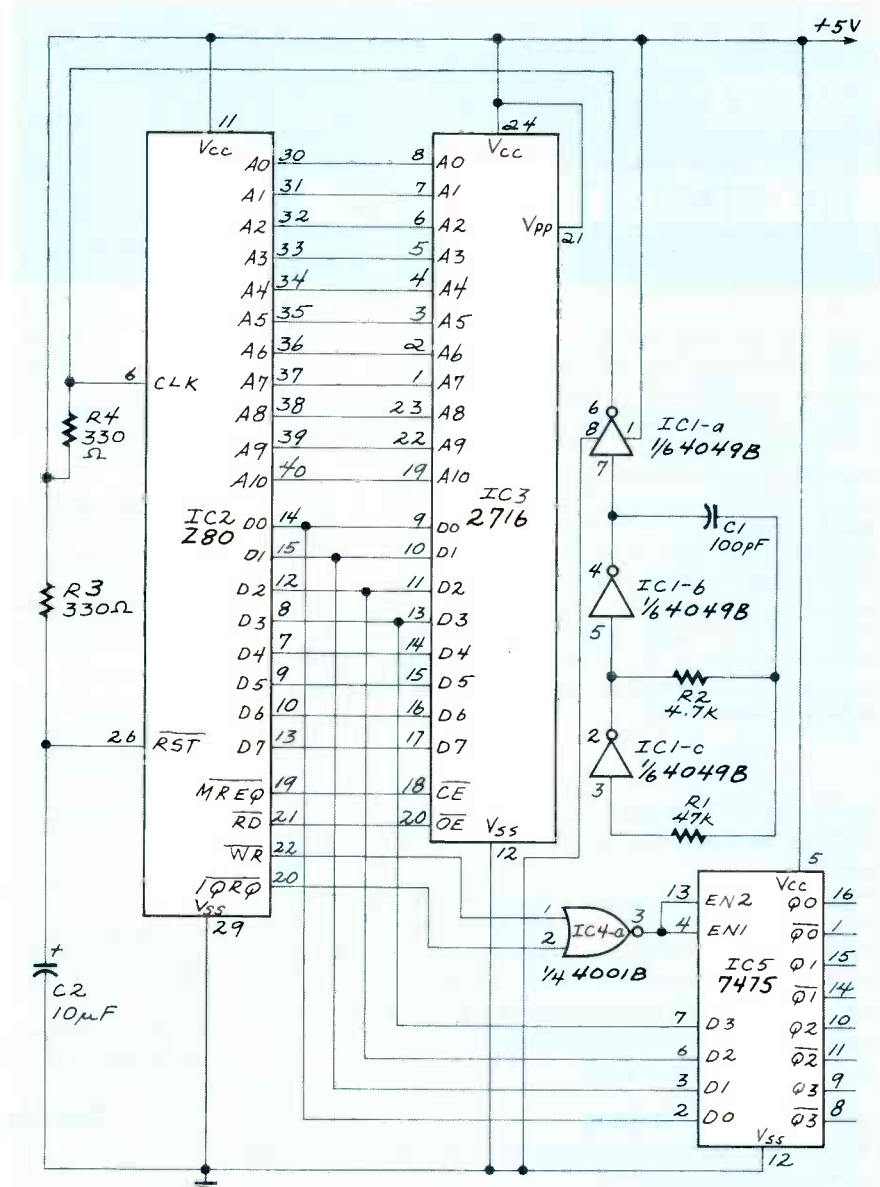 +5V
11
Vcc
A0 30
A1 31
A2 32
A3 33
A4 34
A5 35
A6 36
A7 37
A8 38
A9 39
A10 40
6 CLK
IC2
Z80
D0 14
D1 15
D2 12
D3 8
D4 7
D5 9
D6 10
D7 13
26 RST
MREQ 19
RD 21
WR 22
IQRQ 20
Vss
29
R4
330
Ω
R3
330Ω
+
C2
10µF
24
Vcc
8 A0
7 A1
6 A2
5 A3
4 A4
3 A5
2 A6
1 A7
23 A8
22 A9
19 A10
Vpp
21
IC3
2716
9 D0
10 D1
11 D2
13 D3
14 D4
15 D5
16 D6
17 D7
18 CE
20 OE
Vss
12
6
8 1
7
IC1-a
1/6 4049B
C1
100pF
4
5
IC1-b
1/6 4049B
R2
4.7K
2
3
IC1-c
1/6 4049B
R1
47K
1
2
IC4-a
3
1/4 4001B
5
Vcc
13 EN2
4 EN1
IC5
7475
7 D3
6 D2
3 D1
2 D0
Q0 16
Q0 1
Q1 15
Q1 14
Q2 10
Q2 11
Q3 9
Q3 8
Vss
12